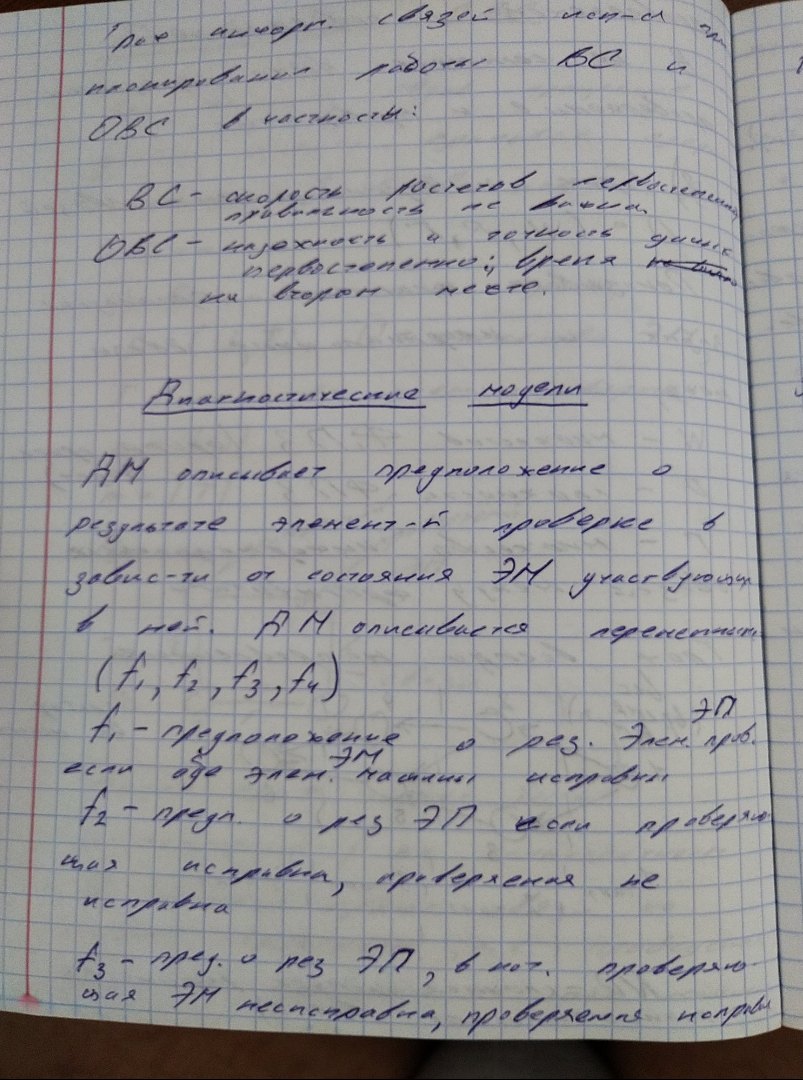 информ. связей исп-я при
планировании работы ВС и
ОВС в частности:
ВС - скорость расчетов первостепенна
правильность не важна
ОВС - надежность и точность данных
первостепенно; время
на втором месте.
Диагностические модели
ДМ описывает предположение о
результате элемент-й проверке в
завис-ти от состояния ЭМ участвующих
в ней. ДМ описывается переменными
(f1, f2, f3, f4)
ЭП
f1 - предположение о рез. Элен. пров.
ЭМ
если обе элен. машины исправны
f2 - предп. о рез ЭП если проверяю-
щая исправна, проверяемая не
исправна
f3 - пред. о рез ЭП, в кот. проверяю-
щая ЭМ неисправна, проверяемая исправн